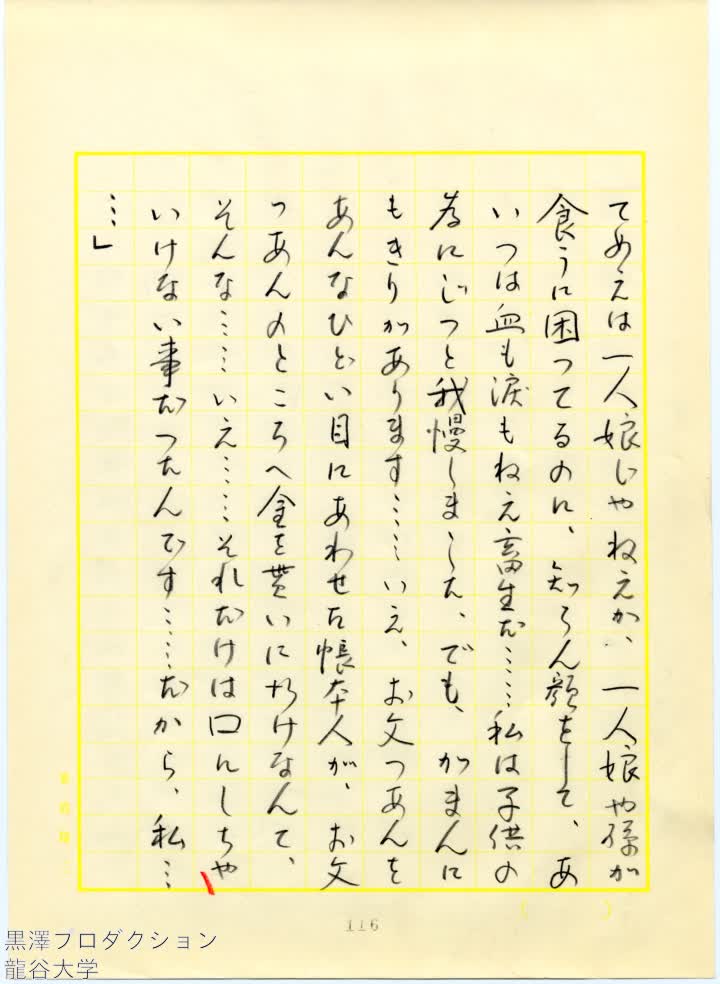 てめえは一人娘じやねえか、一人娘や孫が
食うに困つてるのに、知らん顔をして、あ
いつは血も涙もねえ畜生だ……私は子供の
為にじつと我慢しました、でも、がまんに
もきりがあります……いえ、お父つあんを
あんなひどい目にあわせた帳本人が、お父
つあんのところへ金を貰いに行けなんて、
そんな……いえ……それだけは口にしちや
いけない事だつたんです……だから、私…
…」
116
黒澤プロダクション
龍谷大学